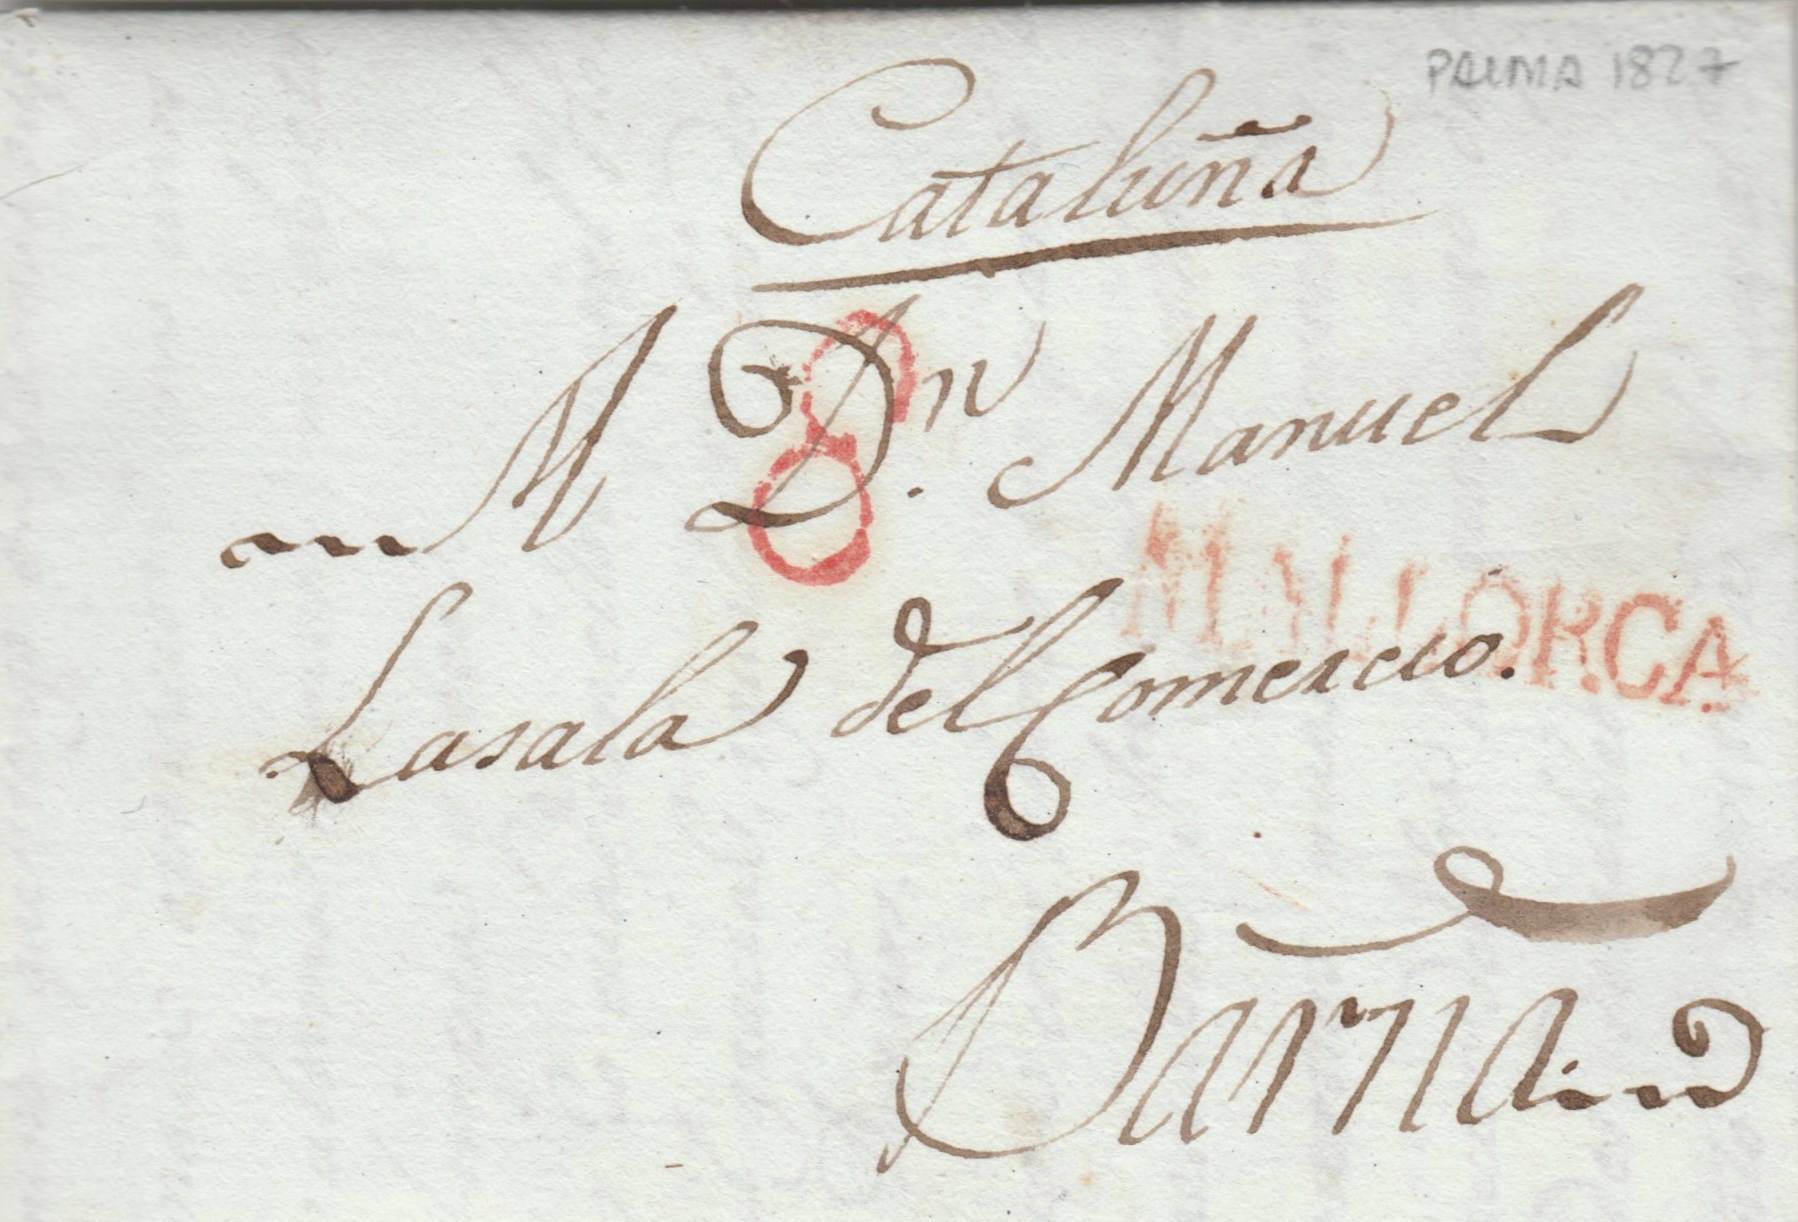 PALMA 1827
Cataluña
A Dn. Manuel
8
MALLORCA
Lasala del Comercio.
Barna